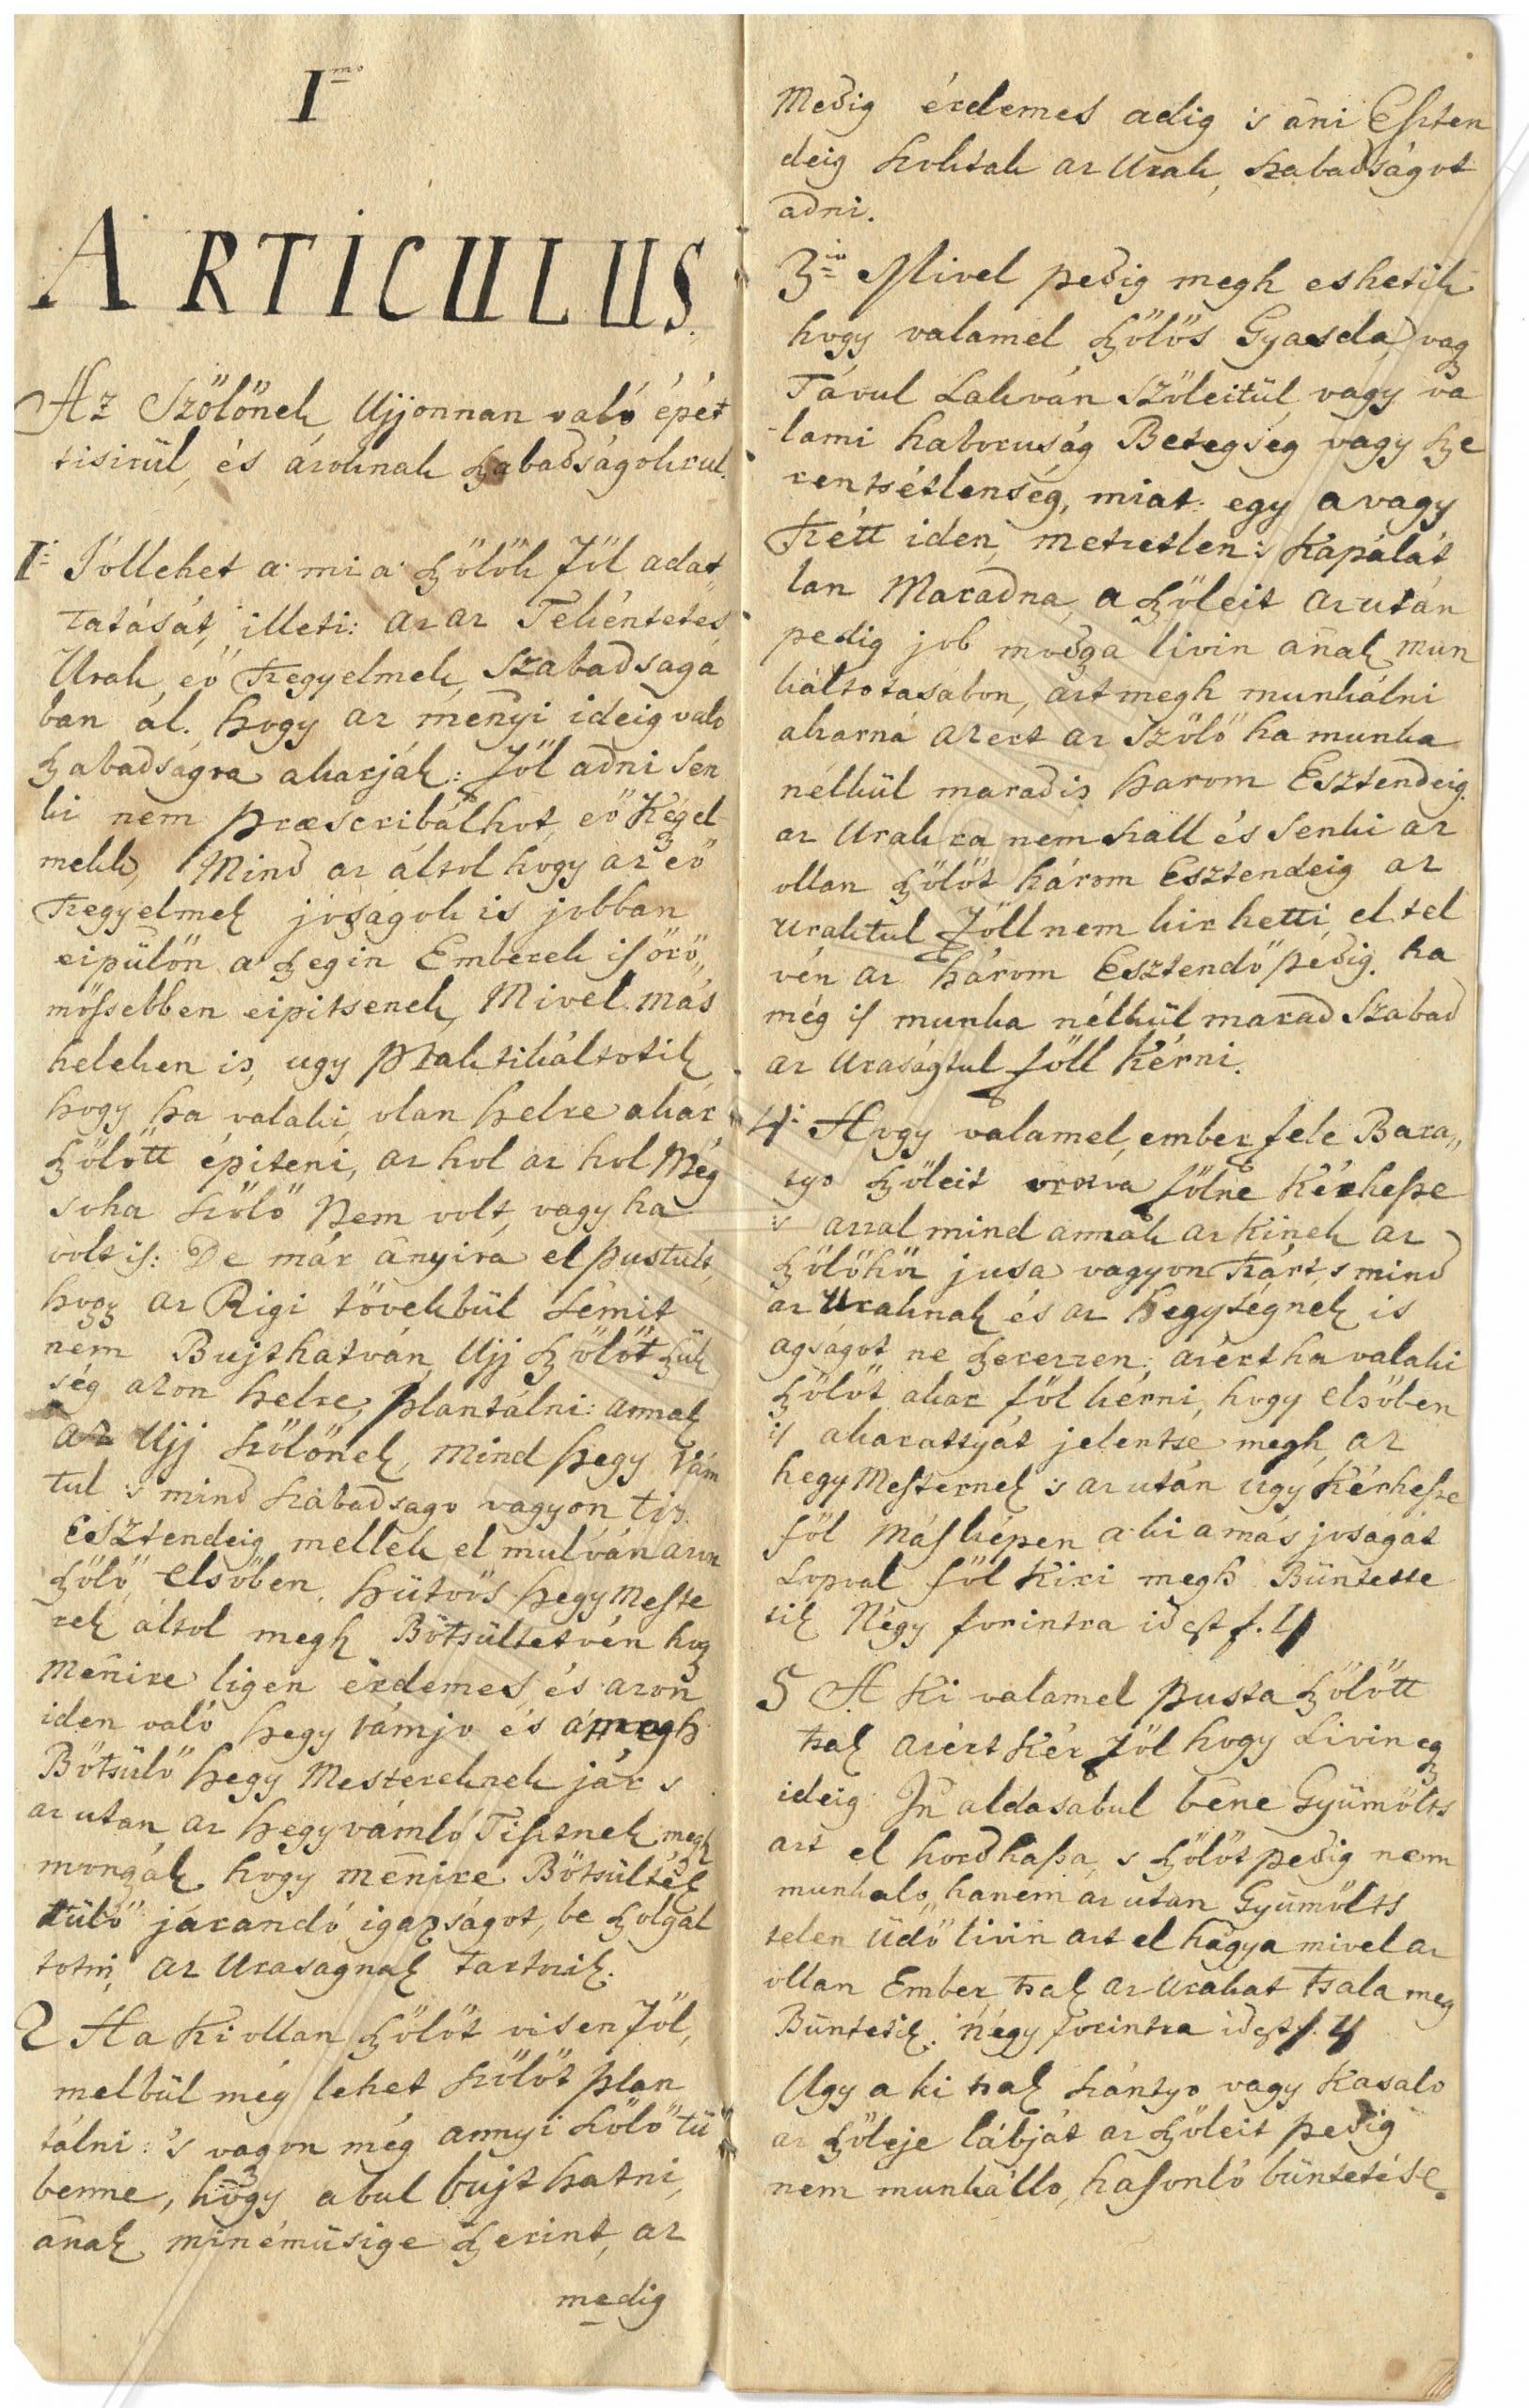 Imo
ARTICULUS.
Az Szölönek Ujjonnan való épét
tisirül, és azoknak szabadságokrul.
I: Jóllehet a mi a szölök föl adat„
tatását, illeti: az az Tekéntetes
Urak, eö kegyelmek, Szabadsaga
ban ál. hogy az menyi ideig valo
szabadságra akarják: föl adni Sen
ki nem præscribálhot, eö Kegel
mekk, Mind az áltol hogy az eö
kegyelmek jóságok is jobban
eipülön a szegin Emberek is örö„
mössebben eipitsenek, Mivel más
heleken is, ugy praktikáltotik
hogy ha valaki olan helre akar
szölött épiteni, az hol az hol Még
soha szölö Nem volt, vagy ha
volt is: De már ānyira el pustult,
hogy az Rigi tövekbül Sémit
nem Bujthatván Ujj szölöt szük
ség azon helre, plantálni: annak
az Ujj szölönek, mind hegy Vám
tul s mind szabadsago vagyon tiz
Esztendeig mellek el mulván azon
szölö, elsöben, hütös hegy Meste
rek áltol megh Bötsültetvén hog
Mēnire ligen érdemes, és azon
iden való hegy vámjo és a megh
Bötsülö hegy Mestereknek jár s
az utan az hegy vámló Tisztnek megh
mongyák hogy mēnire Bötsülték
tülö járandó igazságot, be szolgál
totni az Urasagnak tartozik.
2 Ha Ki ollan szölöt viszen föl,
melbül még lehet szölöt plan
tálni: 's vagon még annyi szölö tü
benne, hogy abul bujthatni,
ānak minémüsige szerint, az
medig
Medig érdemes adig is āni Eszten
deig szoktak az Urak, szabadságot
adni.
3io Mivel pedig megh eshetik
hogy valamel szölös Gyasda vag
Távul Lakván Szöleitül vagy va
lami haboruság Betegség vagy sze
rentsétlenség, miat: egy avagy
két iden metzetlen s Kapálat
lan Maradna, a szöleit az után
pedig job modgya livin ānak mun
káltotasabon, azt megh munkálni
akarná azert az Szölö ha munka
nélkül marad is harom Esztendeig
az Urakra nem száll és Senki az
ollan szölöt három Esztendeig az
uraktul föll nem kirhetti, el tel
vén az három Esztendö pedig. ha
még is munka nélkül marad Szabad
az Uraságtul föll kérni.
4: Hogy valamel, ember fele Bara„
tyo szöleit orozva fölne Kérhesse
s azzal mind annak az Kinek az
szölöhöz jusa vagyon Kárt, s mind
az Uraknak és az hegységnek is
agságot ne szerezzen; azért ha valaki
szölöt akar föl kérni, hogy elsöben
is akarattyát jelentse megh az
hegy Mesternek s az után ugy Kérhesse
föl Máskípen a ki a más joságát
Lopval föl Kiri megh Büntette
tik Négy forintra id est f. 4
5 A Ki valamel pusta szölött
tsak azért Kér föl hogy Livin eg
ideig Jn aldasabul bēne Gyümölts
azt el hordhassa, s szölöt pedig nem
munkalo, hanem az utan Gyümölts
telen üdö livin azt el hagya mivel az
ollan Ember, tsak az urakat tsala meg
Büntetik. Négy forintra id est f. 4
Ugy a ki tsak szántyo vagy Kasalo
az szöleje lábját az szöleit pedig
nem munkállo, hasonló büntetése.